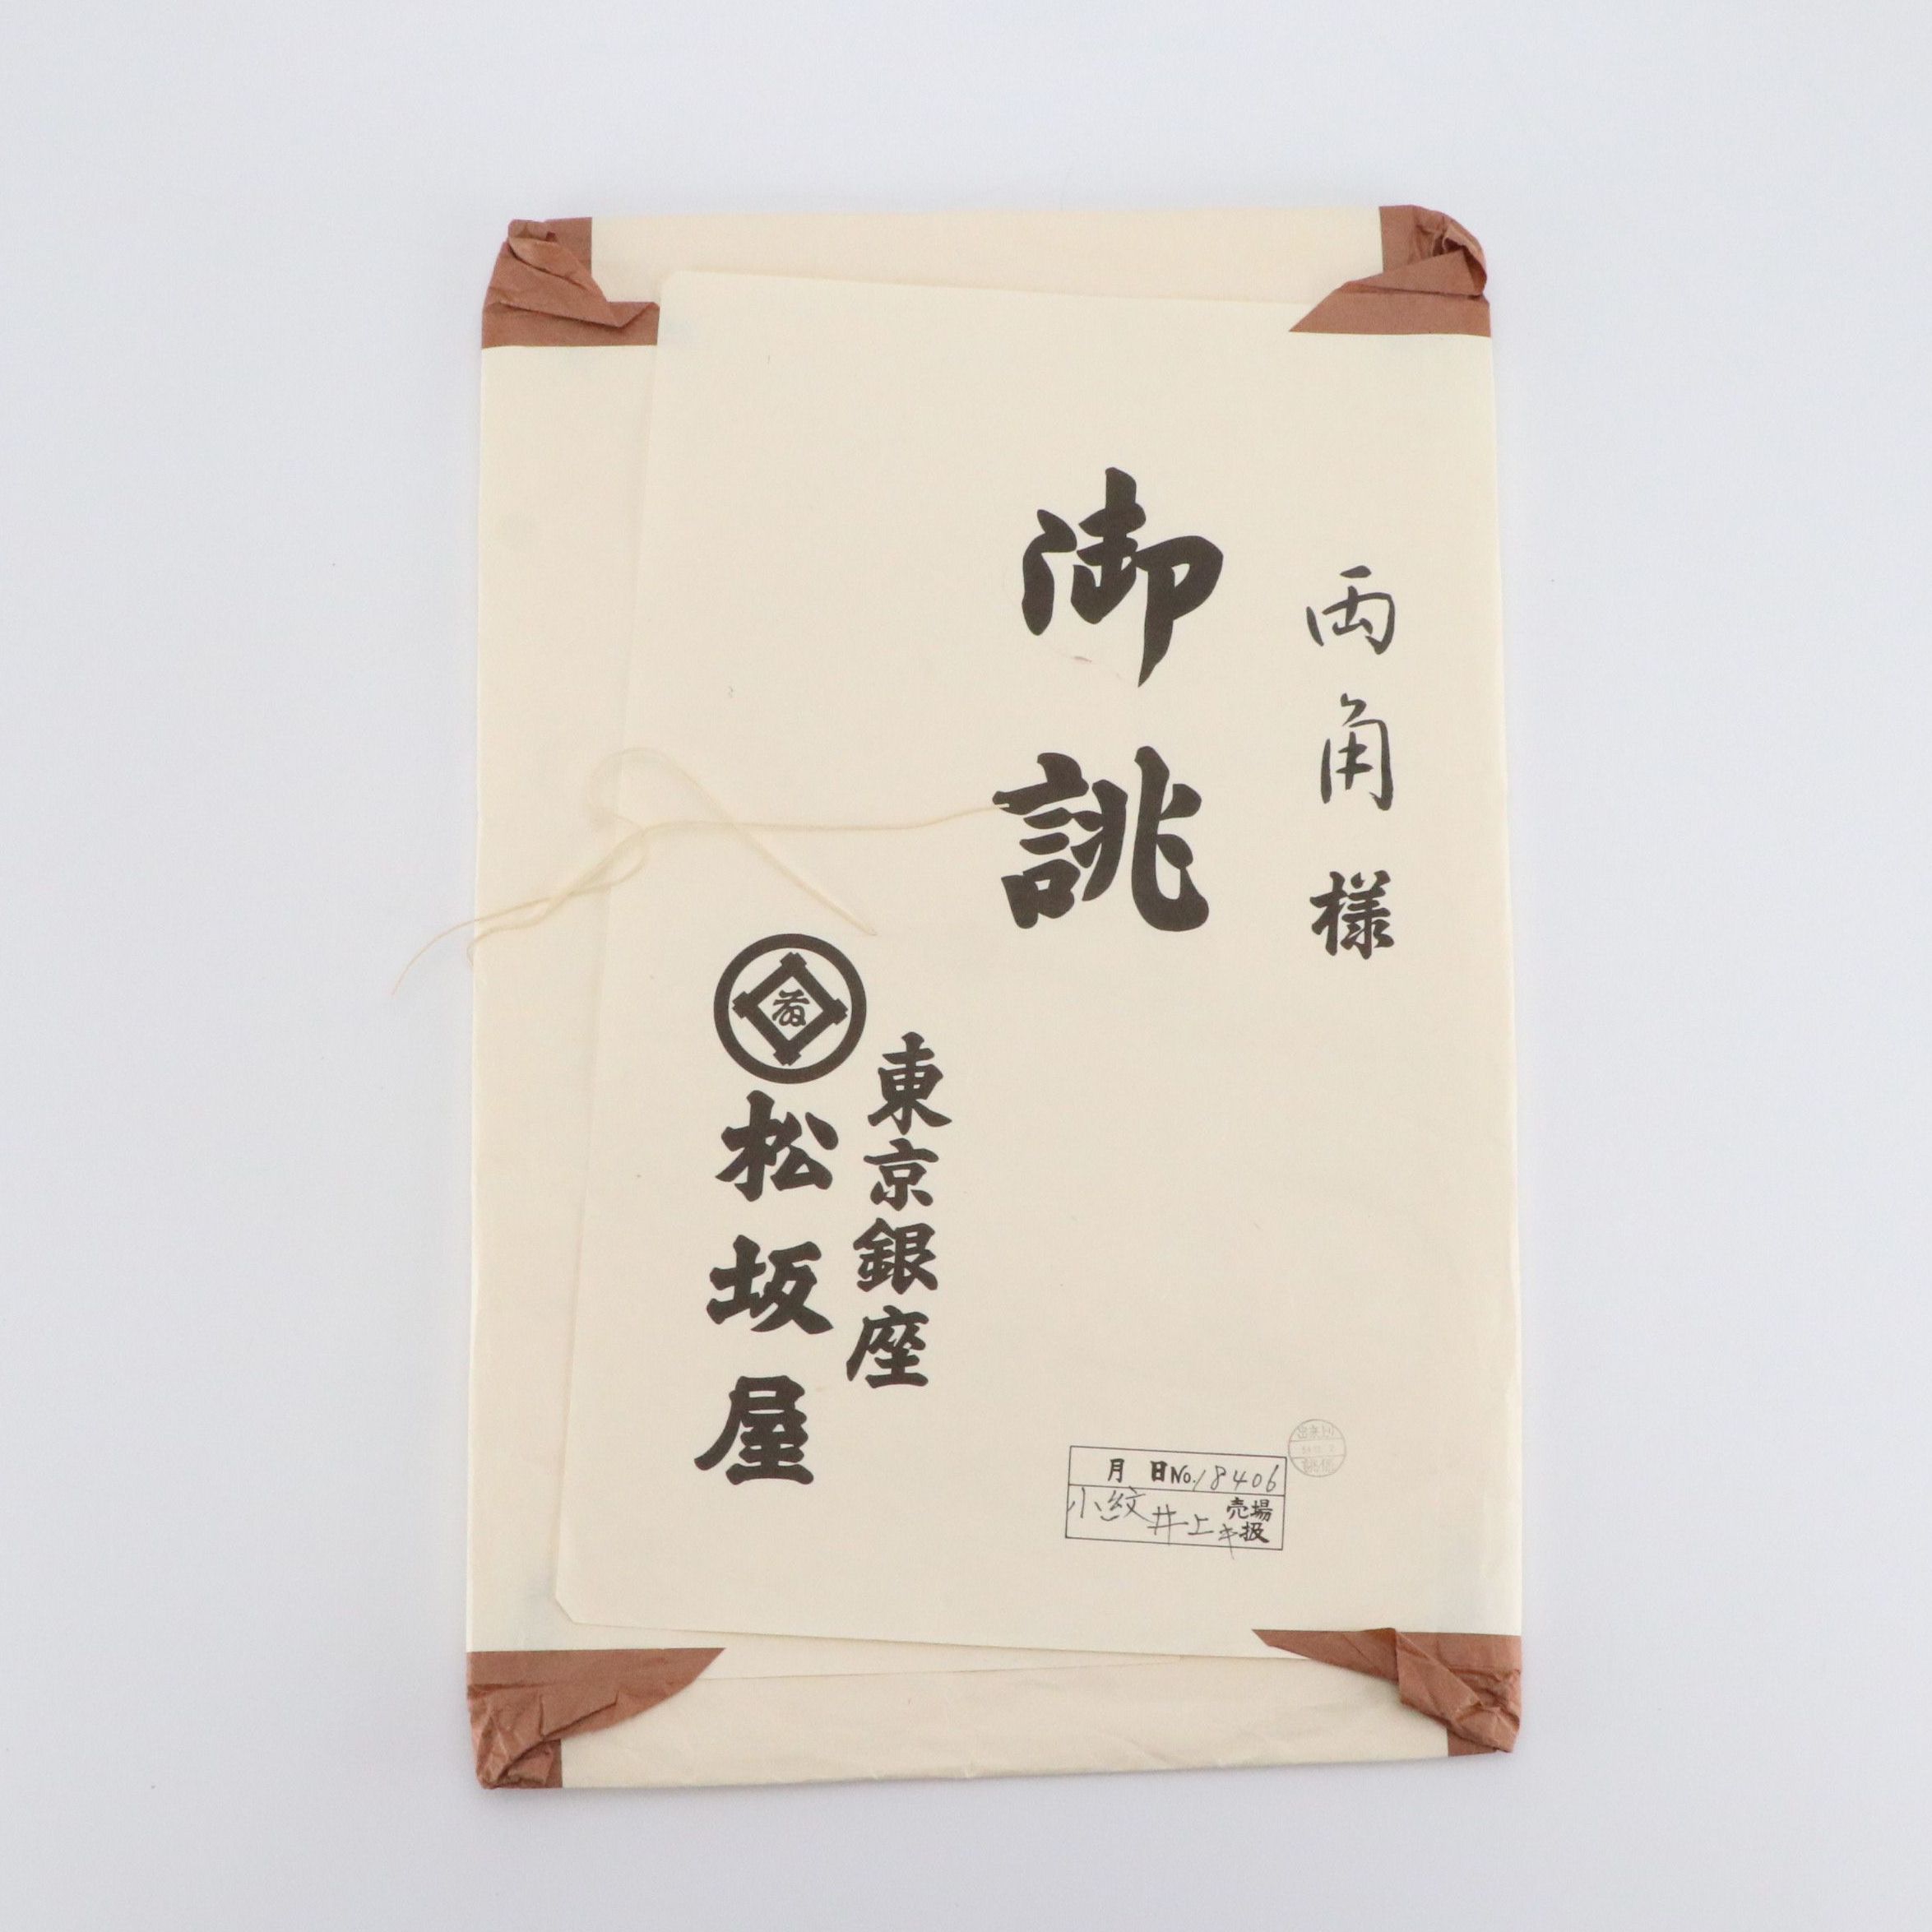 両角様
御誂
東京銀座
松坂屋
月 日 No. 18406
小紋 井上 売場扱